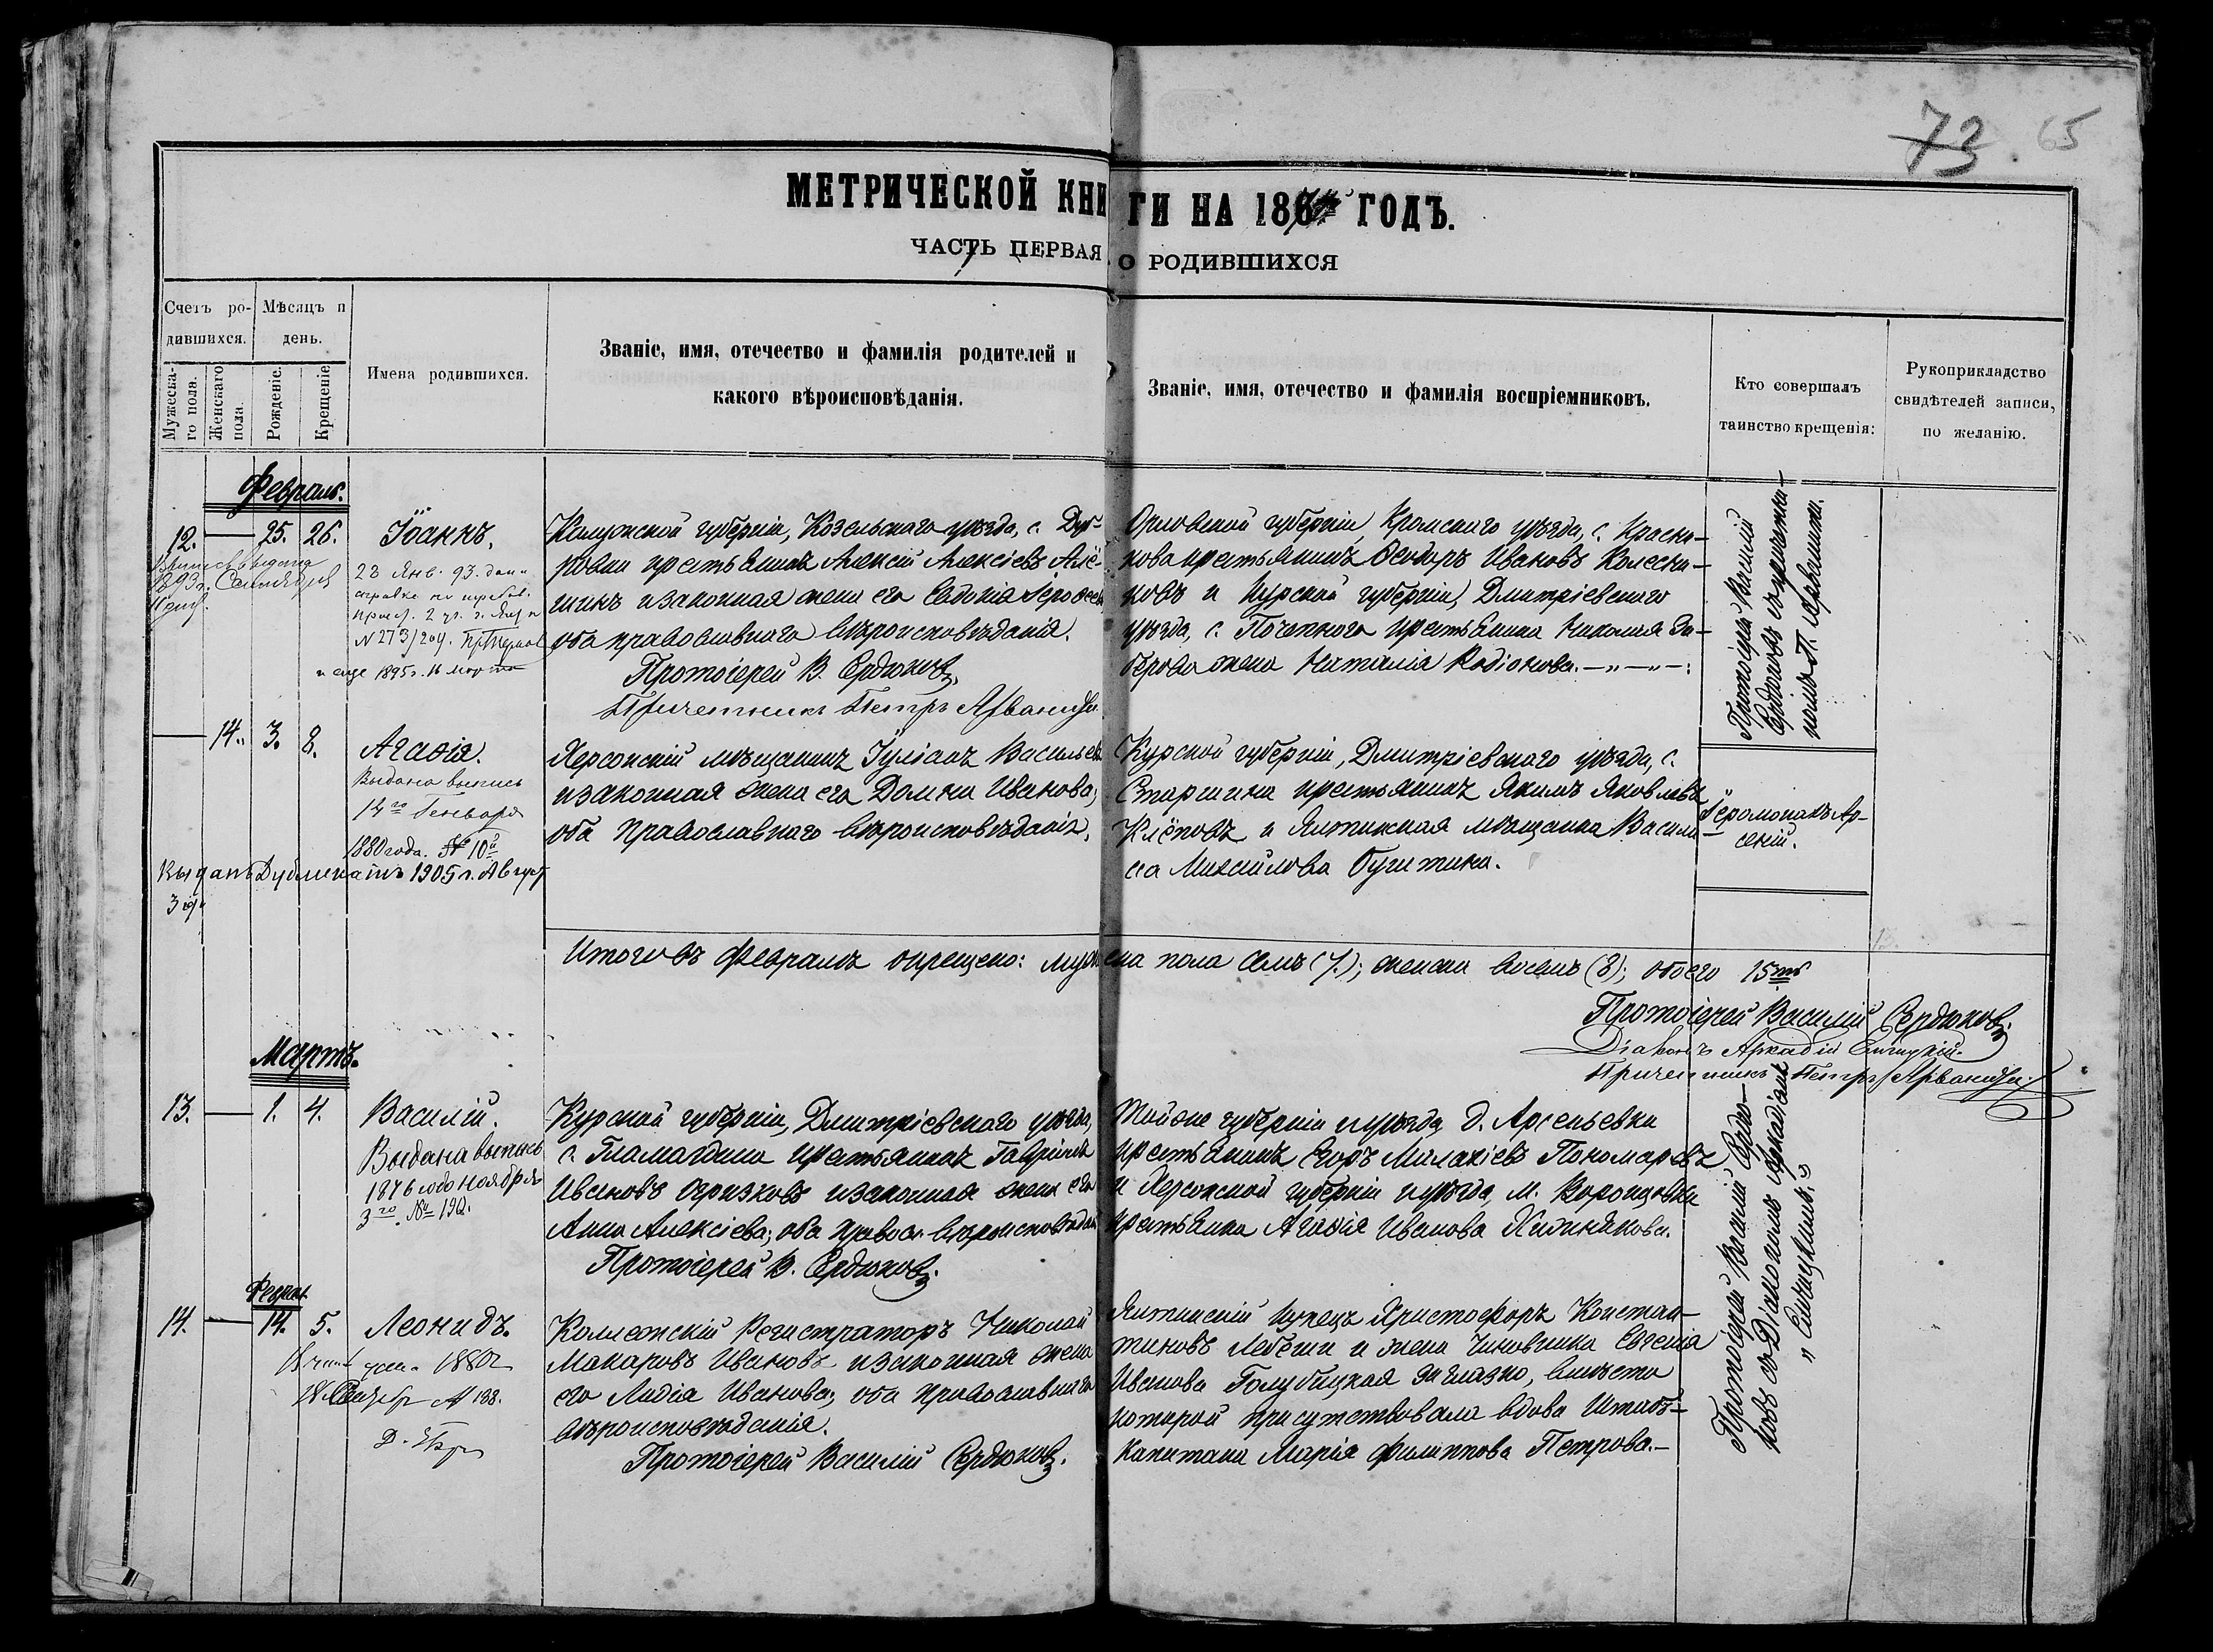 73 65
МЕТРИЧЕСКОЙ КНИГИ НА 187 ГОДЪ.
ЧАСТЬ ПЕРВАЯ О РОДИВШИХСЯ
Счетъ родившихся.
Мѣсяцъ и день.
Имена родившихся.
Званіе, имя, отечество и фамилія родителей и
какого вѣроисповѣданія.
Званіе, имя, отечество и фамилія воспріемниковъ.
Кто совершалъ
таинство крещенія:
Рукоприкладство
свидѣтелей записи,
по желанію.
Мужескаго пола.
Женскаго пола.
Рожденіе.
Крещеніе.
Февраль.
12. — 25. 26. Іоаннъ.
23 Янв. 93. дан.
справка по требов.
№ 273/204.
и еще 1895 г. 16 марта
Калужской губерніи, Козельскаго уѣзда, с. Дуб-
ровки крестьянинъ Алексій Алексіевъ Алё-
шинъ и законная жена его Евдокія
оба православнаго вѣроисповѣданія.
Протоіерей В. Сердюковъ.
Причетникъ Петръ Арваниди
Орловской губерніи, Кромскаго уѣзда, с. Красни-
кова крестьянинъ Феодоръ Ивановъ Колесни-
ковъ и Курской губерніи, Дмитріевскаго
уѣзда, с. Поченнога крестьянина Николая
жена Наталія Родіонова. —„—„—:
Протоіерей Василій
Сердюковъ съ причетни-
комъ П. Арваниди.
— 14. 3. 8. Агаѳія.
Выдана выпись
14го Генваря
1880 года. № 10й
Выданъ Дубликатъ 1905 г. Август
3 дн
Херсонскій мѣщанинъ Іуліанъ Васильевъ
и законная жена его Домна Иванова,
оба Православнаго вѣроисповѣданія.
Курской губерніи, Дмитріевскаго уѣзда, с.
Старшина крестьянинъ Якимъ Яковлевъ
Клёповъ и Ялтинская мѣщанка Васили-
са Михайлова Бугитина.
Іеромонахъ Ар-
сеній.
Итого въ Февралѣ окрещено: мужеска пола семь (7.); женска восемь (8); обоего 15ть
Протоіерей Василій Сердюковъ.
Діаконъ Аркадій Синицкій.
Причетникъ Петръ Арваниди
Мартъ.
13. — 1. 4. Василій.
Выдана выпись
1876 года Ноября
3го. № 192.
Курской губерніи, Дмитріевскаго уѣзда,
с. Гламаздина крестьянинъ Гавріилъ
Ивановъ Огризковъ и законная жена его
Анна Алексіева; оба правосл. вѣроисповѣдан
Протоіерей В. Сердюковъ.
Той же губерніи и уѣзда, д. Арсеньевки
крестьянинъ Егоръ Малахіевъ Пономаревъ
и Херсонской губерніи и уѣзда, м. Воронцовки
крестьянка Агаѳія Иванова
Феврал.
14. — 14. 5. Леонидъ.
1880
№ 138.
Коллежскій Регистраторъ Николай
Макаровъ Ивановъ и законная жена
его Лидія Иванова; оба православнаго
вѣроисповѣданія.
Протоіерей Василій Сердюковъ.
Ялтинскій купецъ Христофоръ Констан-
тиновъ Лебеши и жена Чиновника Евгенія
Иванова Голубицкая заглазно, вмѣсто
которой присутствовала вдова Штабъ-
Капитана Марія Филиппова Петрова.—
Протоіерей Василій Сердю-
ковъ съ Діакономъ Аркадіемъ
„ Синицкимъ.„